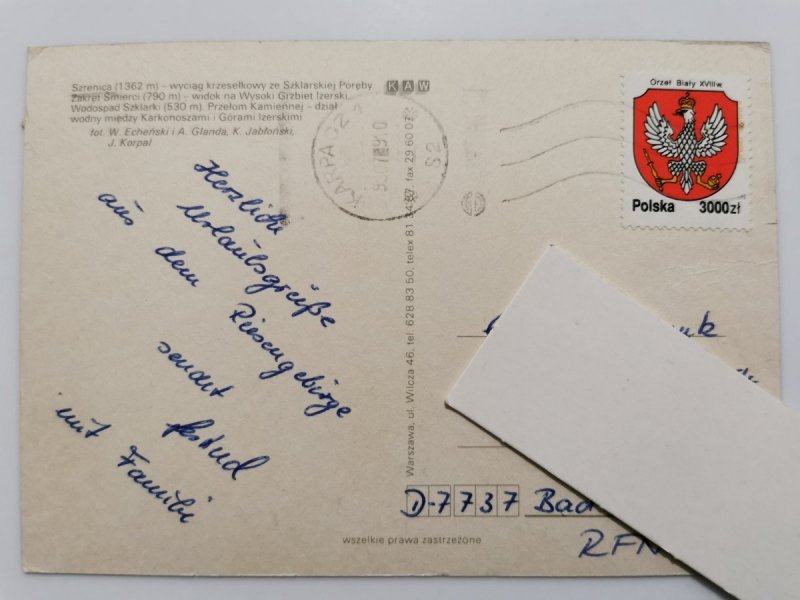 Szrenica (1362 m) – wyciąg krzesełkowy ze Szklarskiej Poręby
Zakręt Śmierci (790 m) – widok na Wysoki Grzbiet Izerski.
Wodospad Szklarki (530 m). Przełom Kamiennej – dział
wodny między Karkonoszami i Górami Izerskimi
fot. W. Echeński i A. Glanda, K. Jabłoński,
J. Korpal
KAW
Herzliche
Urlaubsgrüße
aus dem Riesengebirge
sendet
mit Familie
Warszawa, ul. Wilcza 46, tel: 628 83 50, telex 81 34 87, fax 29 60 07
KARPA
Orzeł Biały XVIII w.
Polska 3000zł
D-7737 Bad
RFN
wszelkie prawa zastrzeżone